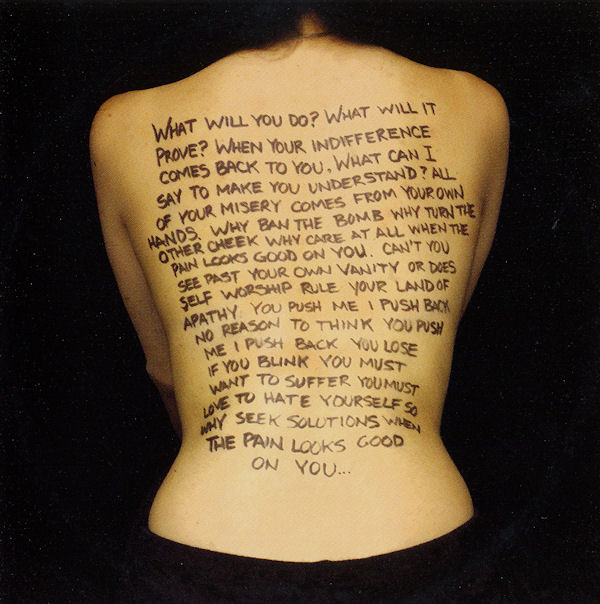 WHAT WILL YOU DO? WHAT WILL IT
PROVE? WHEN YOUR INDIFFERENCE
COMES BACK TO YOU. WHAT CAN I
SAY TO MAKE YOU UNDERSTAND? ALL
OF YOUR MISERY COMES FROM YOUR OWN
HANDS. WHY BAN THE BOMB WHY TURN THE
OTHER CHEEK WHY CARE AT ALL WHEN THE
PAIN LOOKS GOOD ON YOU. CAN'T YOU
SEE PAST YOUR OWN VANITY OR DOES
SELF WORSHIP RULE YOUR LAND OF
APATHY. YOU PUSH ME I PUSH BACK
NO REASON TO THINK YOU PUSH
ME I PUSH BACK YOU LOSE
IF YOU BLINK YOU MUST
WANT TO SUFFER YOU MUST
LOVE TO HATE YOURSELF SO
WHY SEEK SOLUTIONS WHEN
THE PAIN LOOKS GOOD
ON YOU...